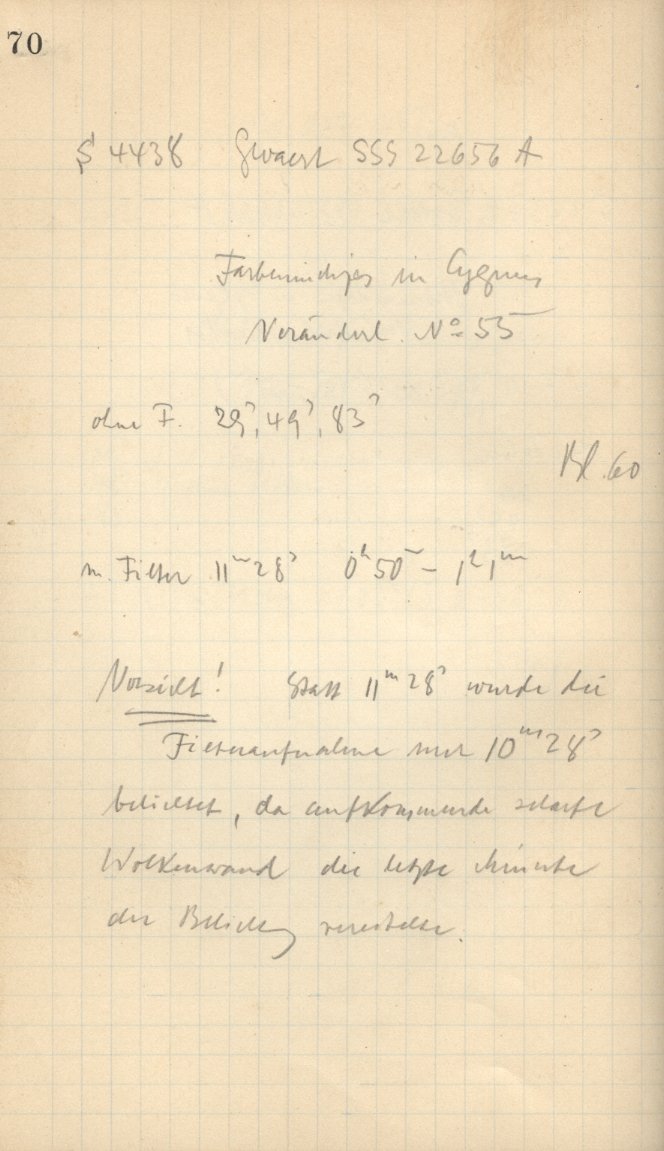 70
S 4438 Gevaert SSS 22656 A
Farbenindizes in Cygnus
Veränderl. No 55
ohne F. 29s, 49s, 83s
Bl. 60
m. Filter 11m 28s 0h 50m – 1h 1m
Vorsicht! Statt 11m 28s wurde die
Filteraufnahme nur 10m 28s
belichtet, da aufkommende scharfe
Wolkenwand die letzte Minute
der Belichtg vereitelte.